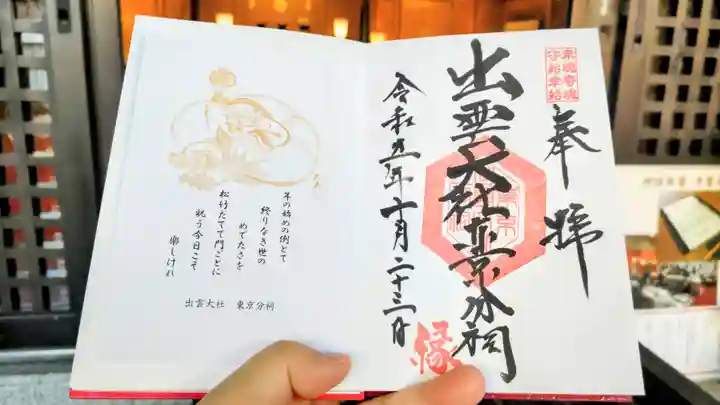 奉拝
出雲大社東京分祠
令和五年十月二十三日
縁
幸魂奇魂守給幸給
年の始めの例とて
終りなき世の
めでたさを
松竹たてて門ごとに
祝う今日こそ
楽しけれ
出雲大社 東京分祠